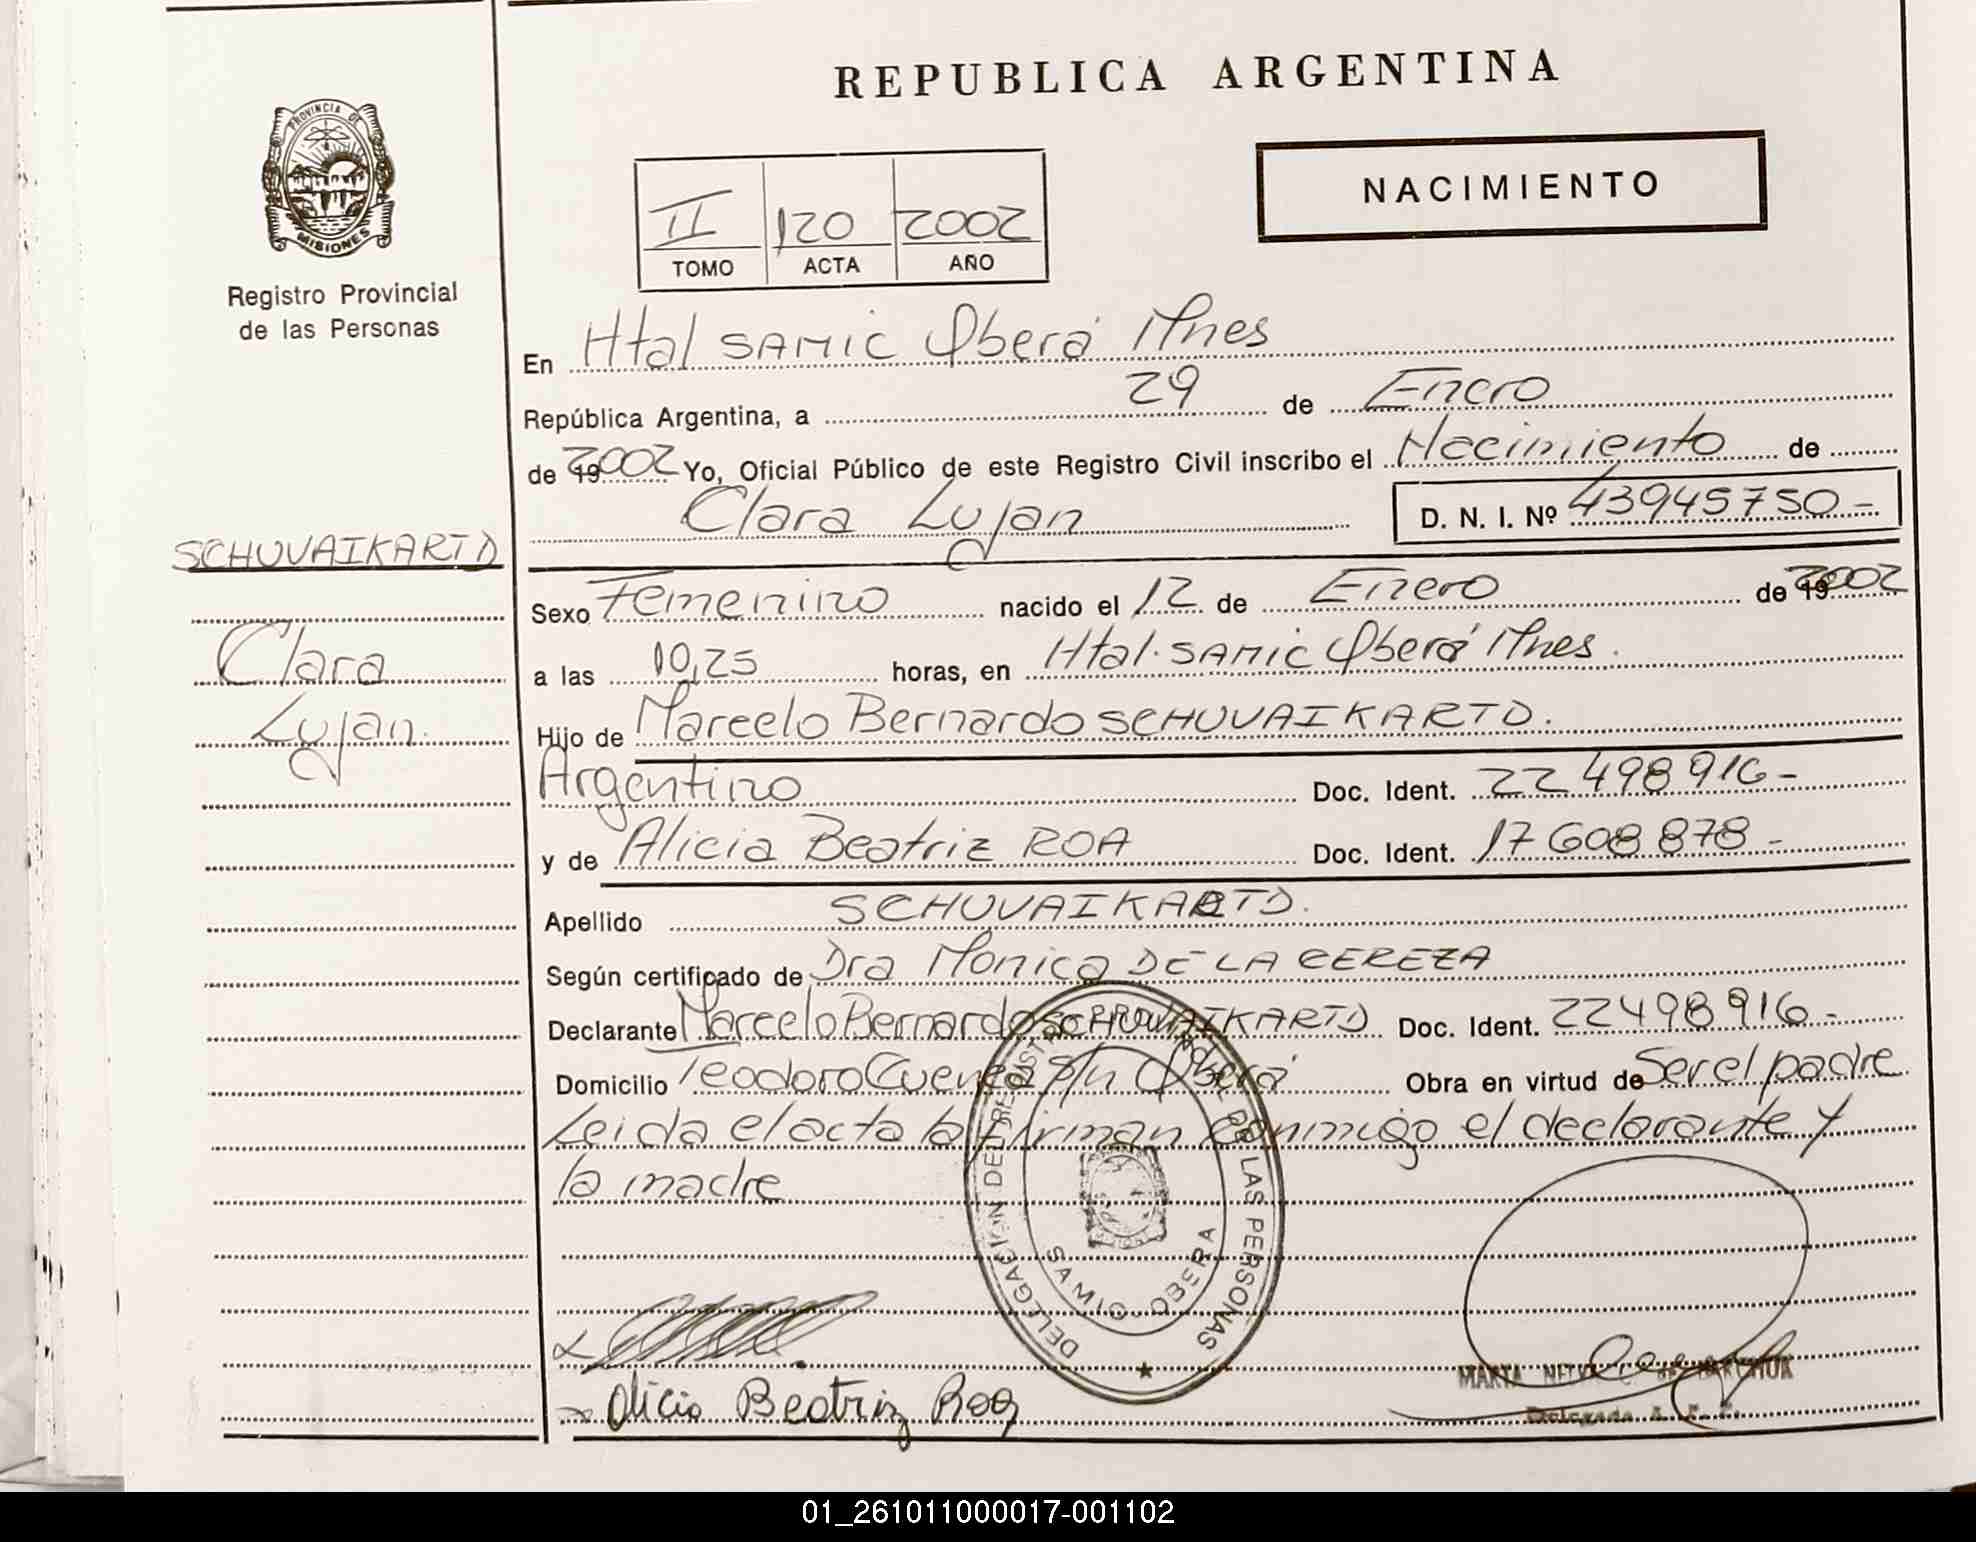 REPUBLICA ARGENTINA
NACIMIENTO
PROVINCIA DE
MISIONES
Registro Provincial
de las Personas
II 120 2002
TOMO ACTA AÑO
En Htal SAMIC Oberá Mnes
República Argentina, a 29 de Enero
de 2002 Yo, Oficial Público de este Registro Civil inscribo el Nacimiento de
Clara Lujan D. N. I. Nº 43945750-
SCHUVAIKARTD
Clara
Lujan.
Sexo Femenino nacido el 12 de Enero de 2002
a las 10,25 horas, en Htal. SAMIC Oberá Mnes.
Hijo de Marcelo Bernardo SCHUVAIKARTD.
Argentino Doc. Ident. 22 498 916-
y de Alicia Beatriz ROA Doc. Ident. 17 608 878-
Apellido SCHUVAIKARTD.
Según certificado de Dra Monica DE LA CEREZA
Declarante Marcelo Bernardo SCHUVAIKARTD Doc. Ident. 22498916-
Domicilio Teodoro Cuenca S/n Oberá Obra en virtud de Ser el padre
Leida el acta la firman conmigo el declarante y
la madre
DELEGACION DEL REGISTRO PROVINCIAL DE LAS PERSONAS
SAMIC OBERA
Alicia Beatriz Roa
MARTA
Delegada
01_261011000017-001102